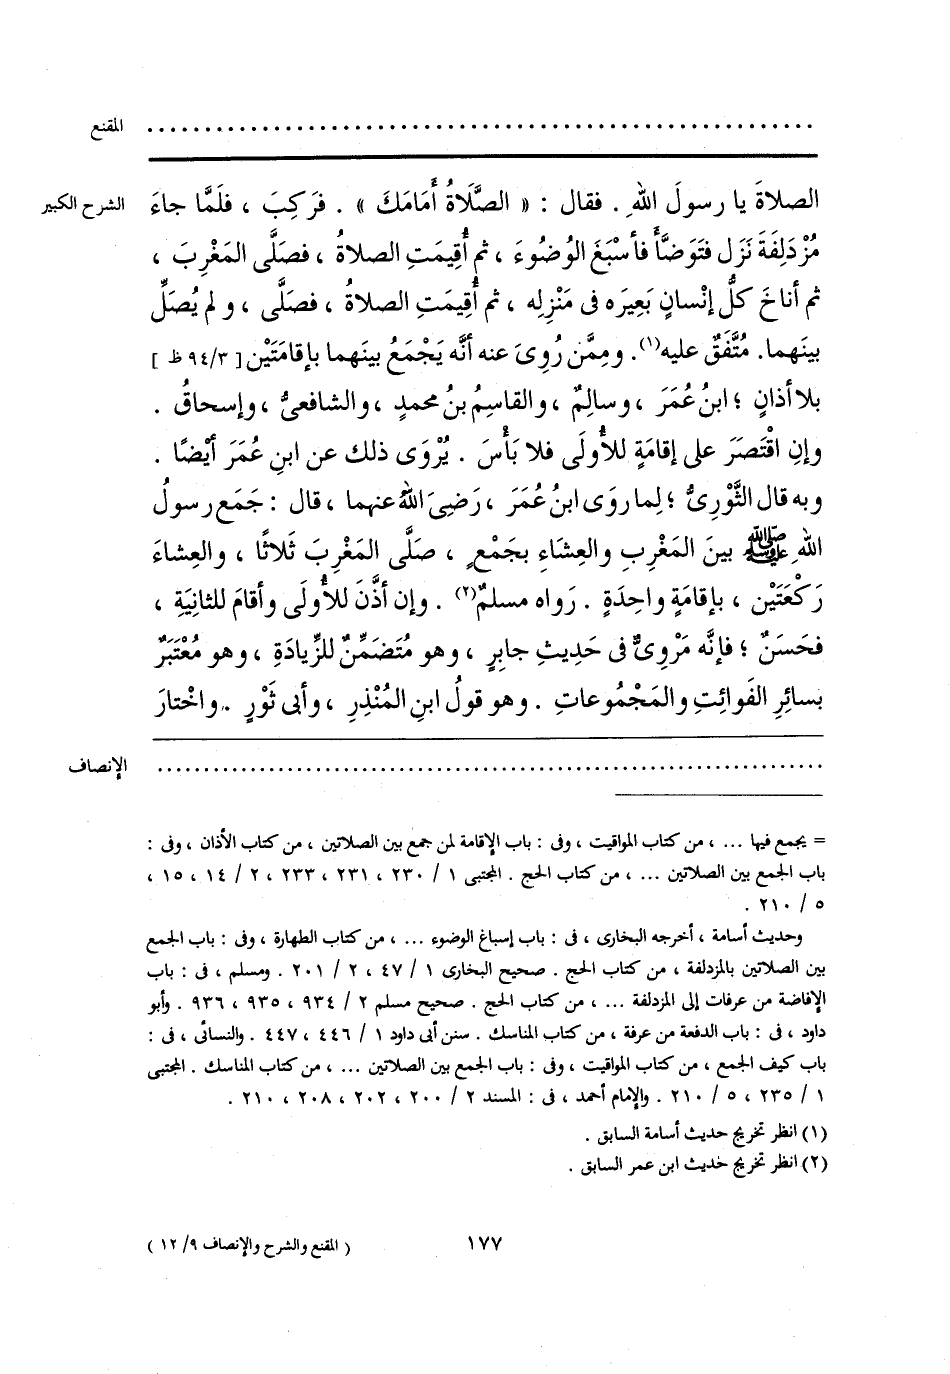 المقنع ..........................................................
الشرح الكبير
الصلاةَ يا رسولَ اللهِ . فقال : « الصَّلَاةُ أَمَامَكَ » . فرَكِبَ ، فلَمَّا جاءَ
مُزْدَلِفَةَ نَزَل فتَوَضَّأَ فأسْبَغَ الوُضُوءَ ، ثم أُقِيمَتِ الصلاةُ ، فصَلَّى المَغْرِبَ ،
ثم أناخَ كلُّ إنْسانٍ بَعِيرَه فى مَنْزِلِه ، ثم أُقِيمَتِ الصلاةُ ، فصَلَّى ، ولم يُصَلِّ
بينَهما. مُتَّفَقٌ عليه(١). ومِمَّن رُوِىَ عنه أنَّه يَجْمَعُ بينَهما بإقامَتَيْن [ ٩٤/٣ ظ ]
بلا أذانٍ ؛ ابنُ عُمَرَ ، وسالِمٌ ، والقاسِمُ بنُ محمدٍ ، والشافعىُّ ، وإسحاقُ .
وإنِ اقْتَصَرَ على إقامَةٍ للأُولَى فلا بَأْسَ . يُرْوَى ذلك عن ابنِ عُمَرَ أيْضًا .
وبه قال الثَّوْرِىُّ ؛ لِما روَى ابنُ عُمَرَ ، رَضِىَ اللهُ عنهما ، قال : جَمَع رسولُ
اللهِ ﷺ بينَ المَغْرِبِ والعِشَاءِ بجَمْعٍ ، صَلَّى المَغْرِبَ ثَلاثًا ، والعِشاءَ
رَكْعَتَيْن ، بإقامَةٍ واحِدَةٍ . رَواه مسلمٌ(٢) . وإن أذَّنَ للأُولَى وأقامَ للثانِيَةِ ،
فحَسَنٌ ؛ فإنَّه مَرْوِىٌّ فى حَدِيثِ جابِرٍ ، وهو مُتَضَمِّنٌ للزِّيادَةِ ، وهو مُعْتَبَرٌ
بسائِرِ الفَوائِتِ والمَجْمُوعاتِ . وهو قولُ ابنِ المُنْذِرِ ، وأبى ثَوْرٍ . واخْتارَ
الإنصاف ..........................................................
= يجمع فيها ... ، من كتاب المواقيت ، وفى : باب الإقامة لمن جمع بين الصلاتين ، من كتاب الأذان ، وفى :
باب الجمع بين الصلاتين ... ، من كتاب الحج . المجتبى ١ / ٢٣٠ ، ٢٣١ ، ٢٣٣ ، ٢ / ١٤ ، ١٥ ،
٥ / ٢١٠ .
وحديث أسامة ، أخرجه البخارى ، فى : باب إسباغ الوضوء ... ، من كتاب الطهارة ، وفى : باب الجمع
بين الصلاتين بالمزدلفة ، من كتاب الحج . صحيح البخارى ١ / ٤٧ ، ٢ / ٢٠١ . ومسلم ، فى : باب
الإفاضة من عرفات إلى المزدلفة ... ، من كتاب الحج . صحيح مسلم ٢ / ٩٣٤ ، ٩٣٥ ، ٩٣٦ . وأبو
داود ، فى : باب الدفعة من عرفة ، من كتاب المناسك . سنن أبى داود ١ / ٤٤٦ ، ٤٤٧ . والنسائى ، فى :
باب كيف الجمع ، من كتاب المواقيت ، وفى : باب الجمع بين الصلاتين ... ، من كتاب المناسك . المجتبى
١ / ٢٣٥ ، ٥ / ٢١٠ . والإمام أحمد ، فى : المسند ٢ / ٢٠٠ ، ٢٠٢ ، ٢٠٨ ، ٢١٠ .
(١) انظر تخريج حديث أسامة السابق .
(٢) انظر تخريج حديث ابن عمر السابق .
١٧٧ ( المقنع والشرح والإنصاف ١٢/٩ )